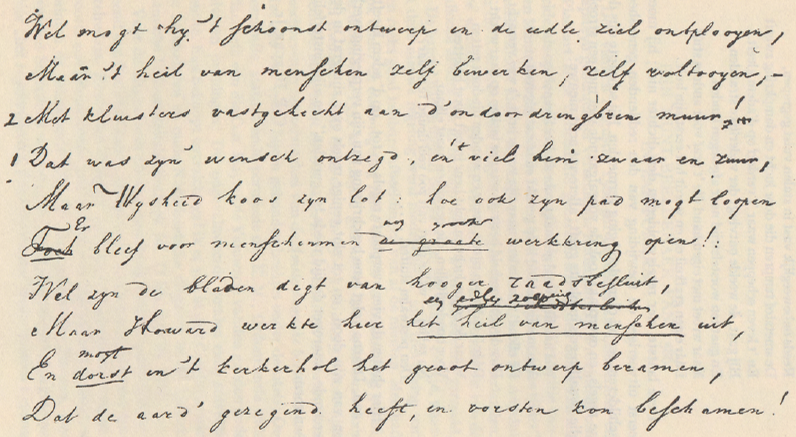 Wel mogt hy 't schoonst ontwerp in de edle ziel ontplooyen,
Maar 't heil van menschen zelf bewerken, zelf voltooyen, –
2 Met kluisters vastgehecht aan d'ondoordringbren muur!
1 Dat was zyn' wensch ontzegd, en 't viel hem zwaar en zuur,
Maar Wysheid koos zyn lot: hoe ook zyn pad mogt loopen
nog grooter
Er
Toch bleef voor menschenmin de groote werkkring open!:
Wel zyn de bladen digt van hooger raadsbesluit,
edle
Maar Howard werkte hier het heil van menschen uit,
mogt
En dorst in 't kerkerhol het groot ontwerp beramen,
Dat de aard' gezegend heeft, en vorsten kon beschamen!